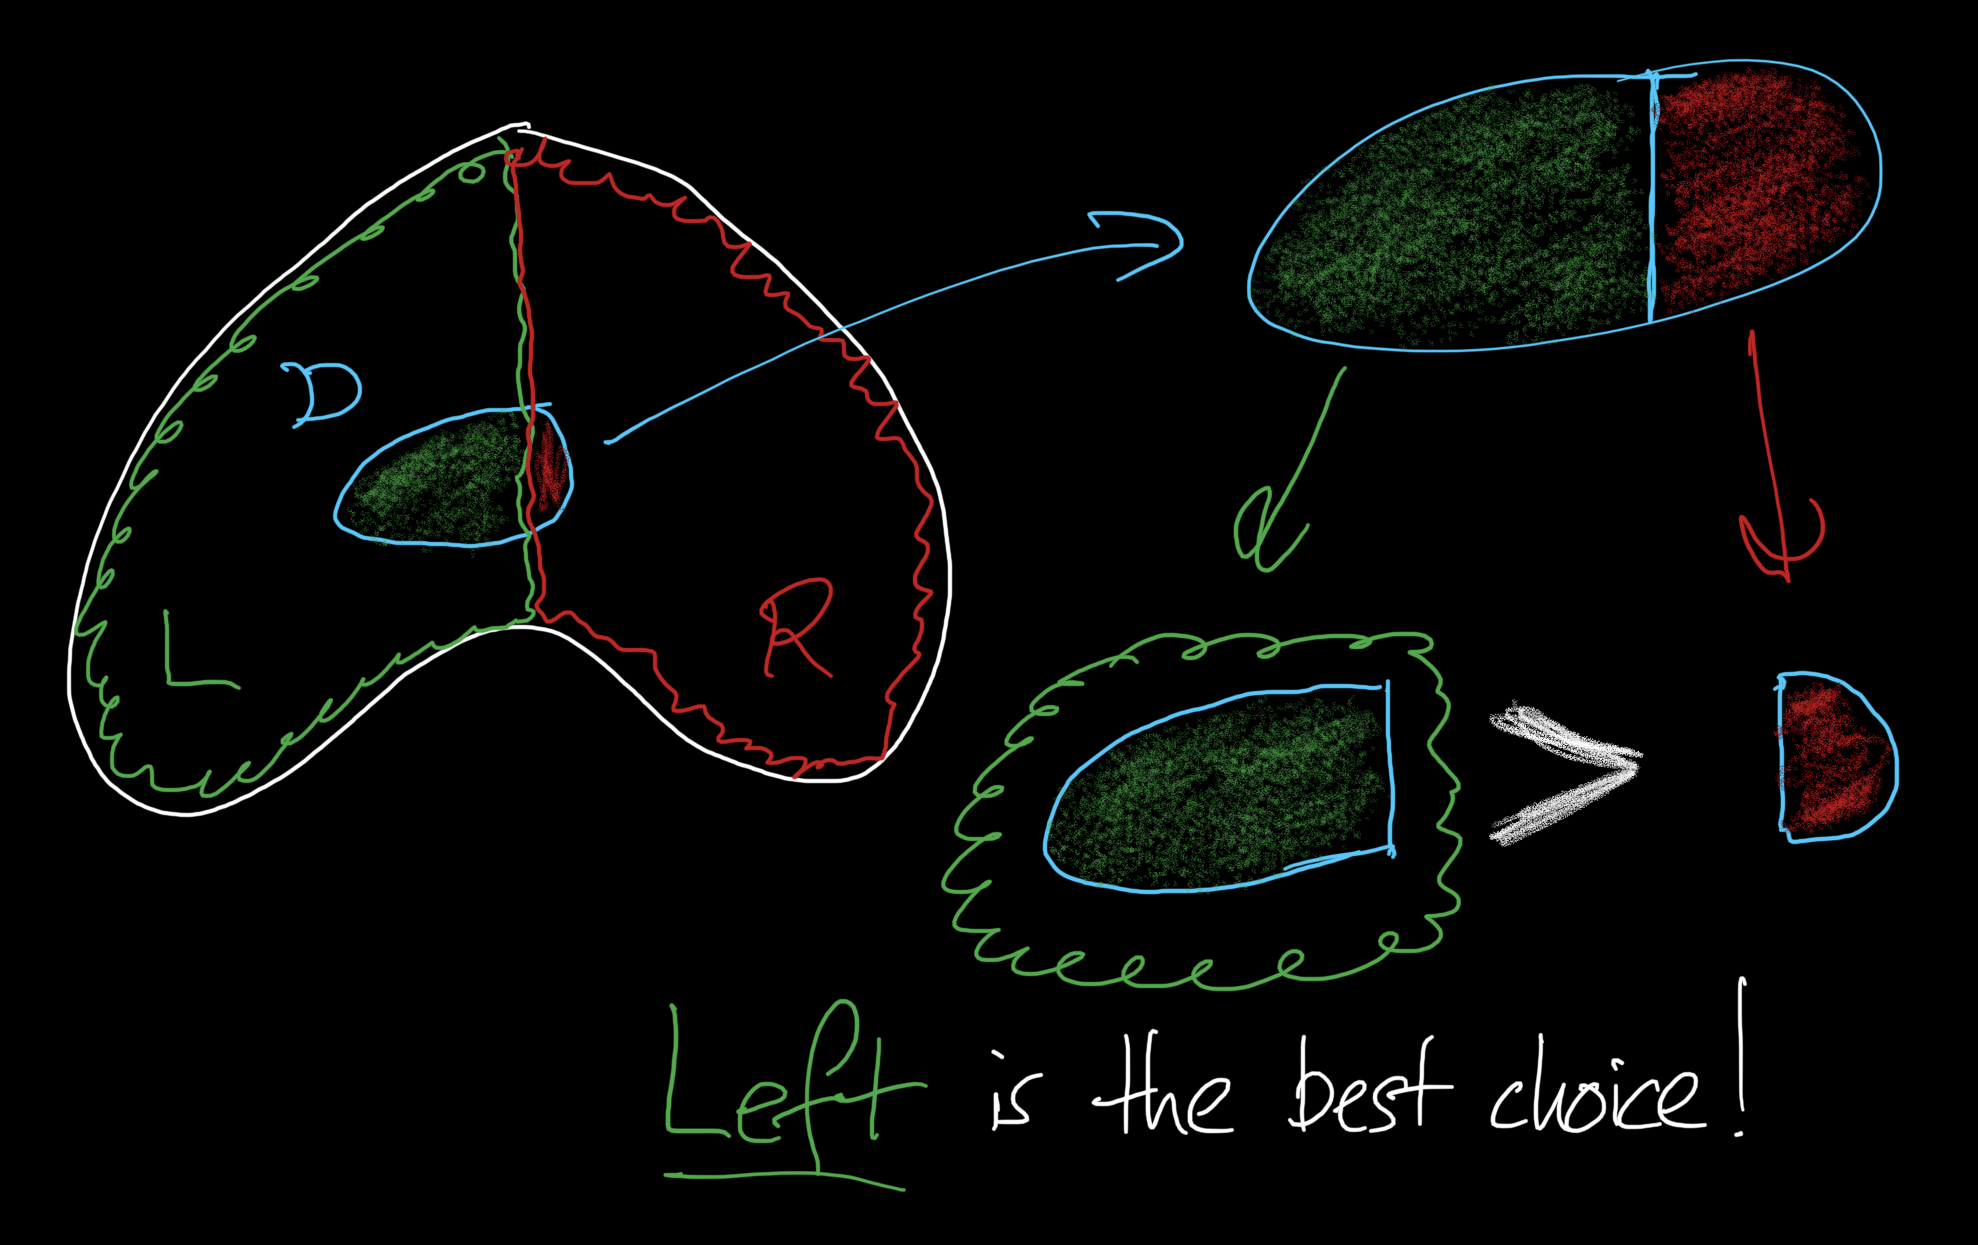 D
L
R
>
Left is the best choice!